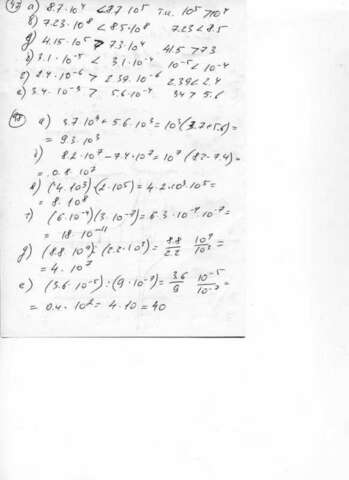 97 a) 8.7·10⁴ < 8.7 10⁵ т.к. 10⁵ > 10⁴
б) 7.23·10⁸ < 8.5·10⁸ 7.23 < 8.5
д) 4.15·10⁵ > 7.3·10⁴ 41.5 > 7.3
б) 3.1·10⁻⁵ < 3.1·10⁻⁴ 10⁻⁵ < 10⁻⁴
2.4·10⁻⁶ > 2.39·10⁻⁶ 2.39 < 2.4
е) 3.4·10⁻³ > 5.6·10⁻⁴ 34 > 5.6
98 а) 3.7·10³ + 5.6·10³ = 10³(3.7+5.6) =
= 9.3·10³
8.2·10⁷ − 7.4·10⁷ = 10⁷(8.2−7.4) =
= 0.8·10⁷
в) (4·10³)·(2·10⁵) = 4·2·10³·10⁵ =
= 8·10⁸
г) (6·10⁻⁴)(3·10⁻⁷) = 6·3·10⁻⁴·10⁻⁷ =
= 18·10⁻¹¹
д) (8.8·10⁹):(2.2·10²) = 8.8/2.2 10⁹/10² =
= 4·10⁷
е) (3.6·10⁻⁵):(9·10⁻⁷) = 3.6/9 10⁻⁵/10⁻⁷ =
= 0.4·10² = 4·10 = 40